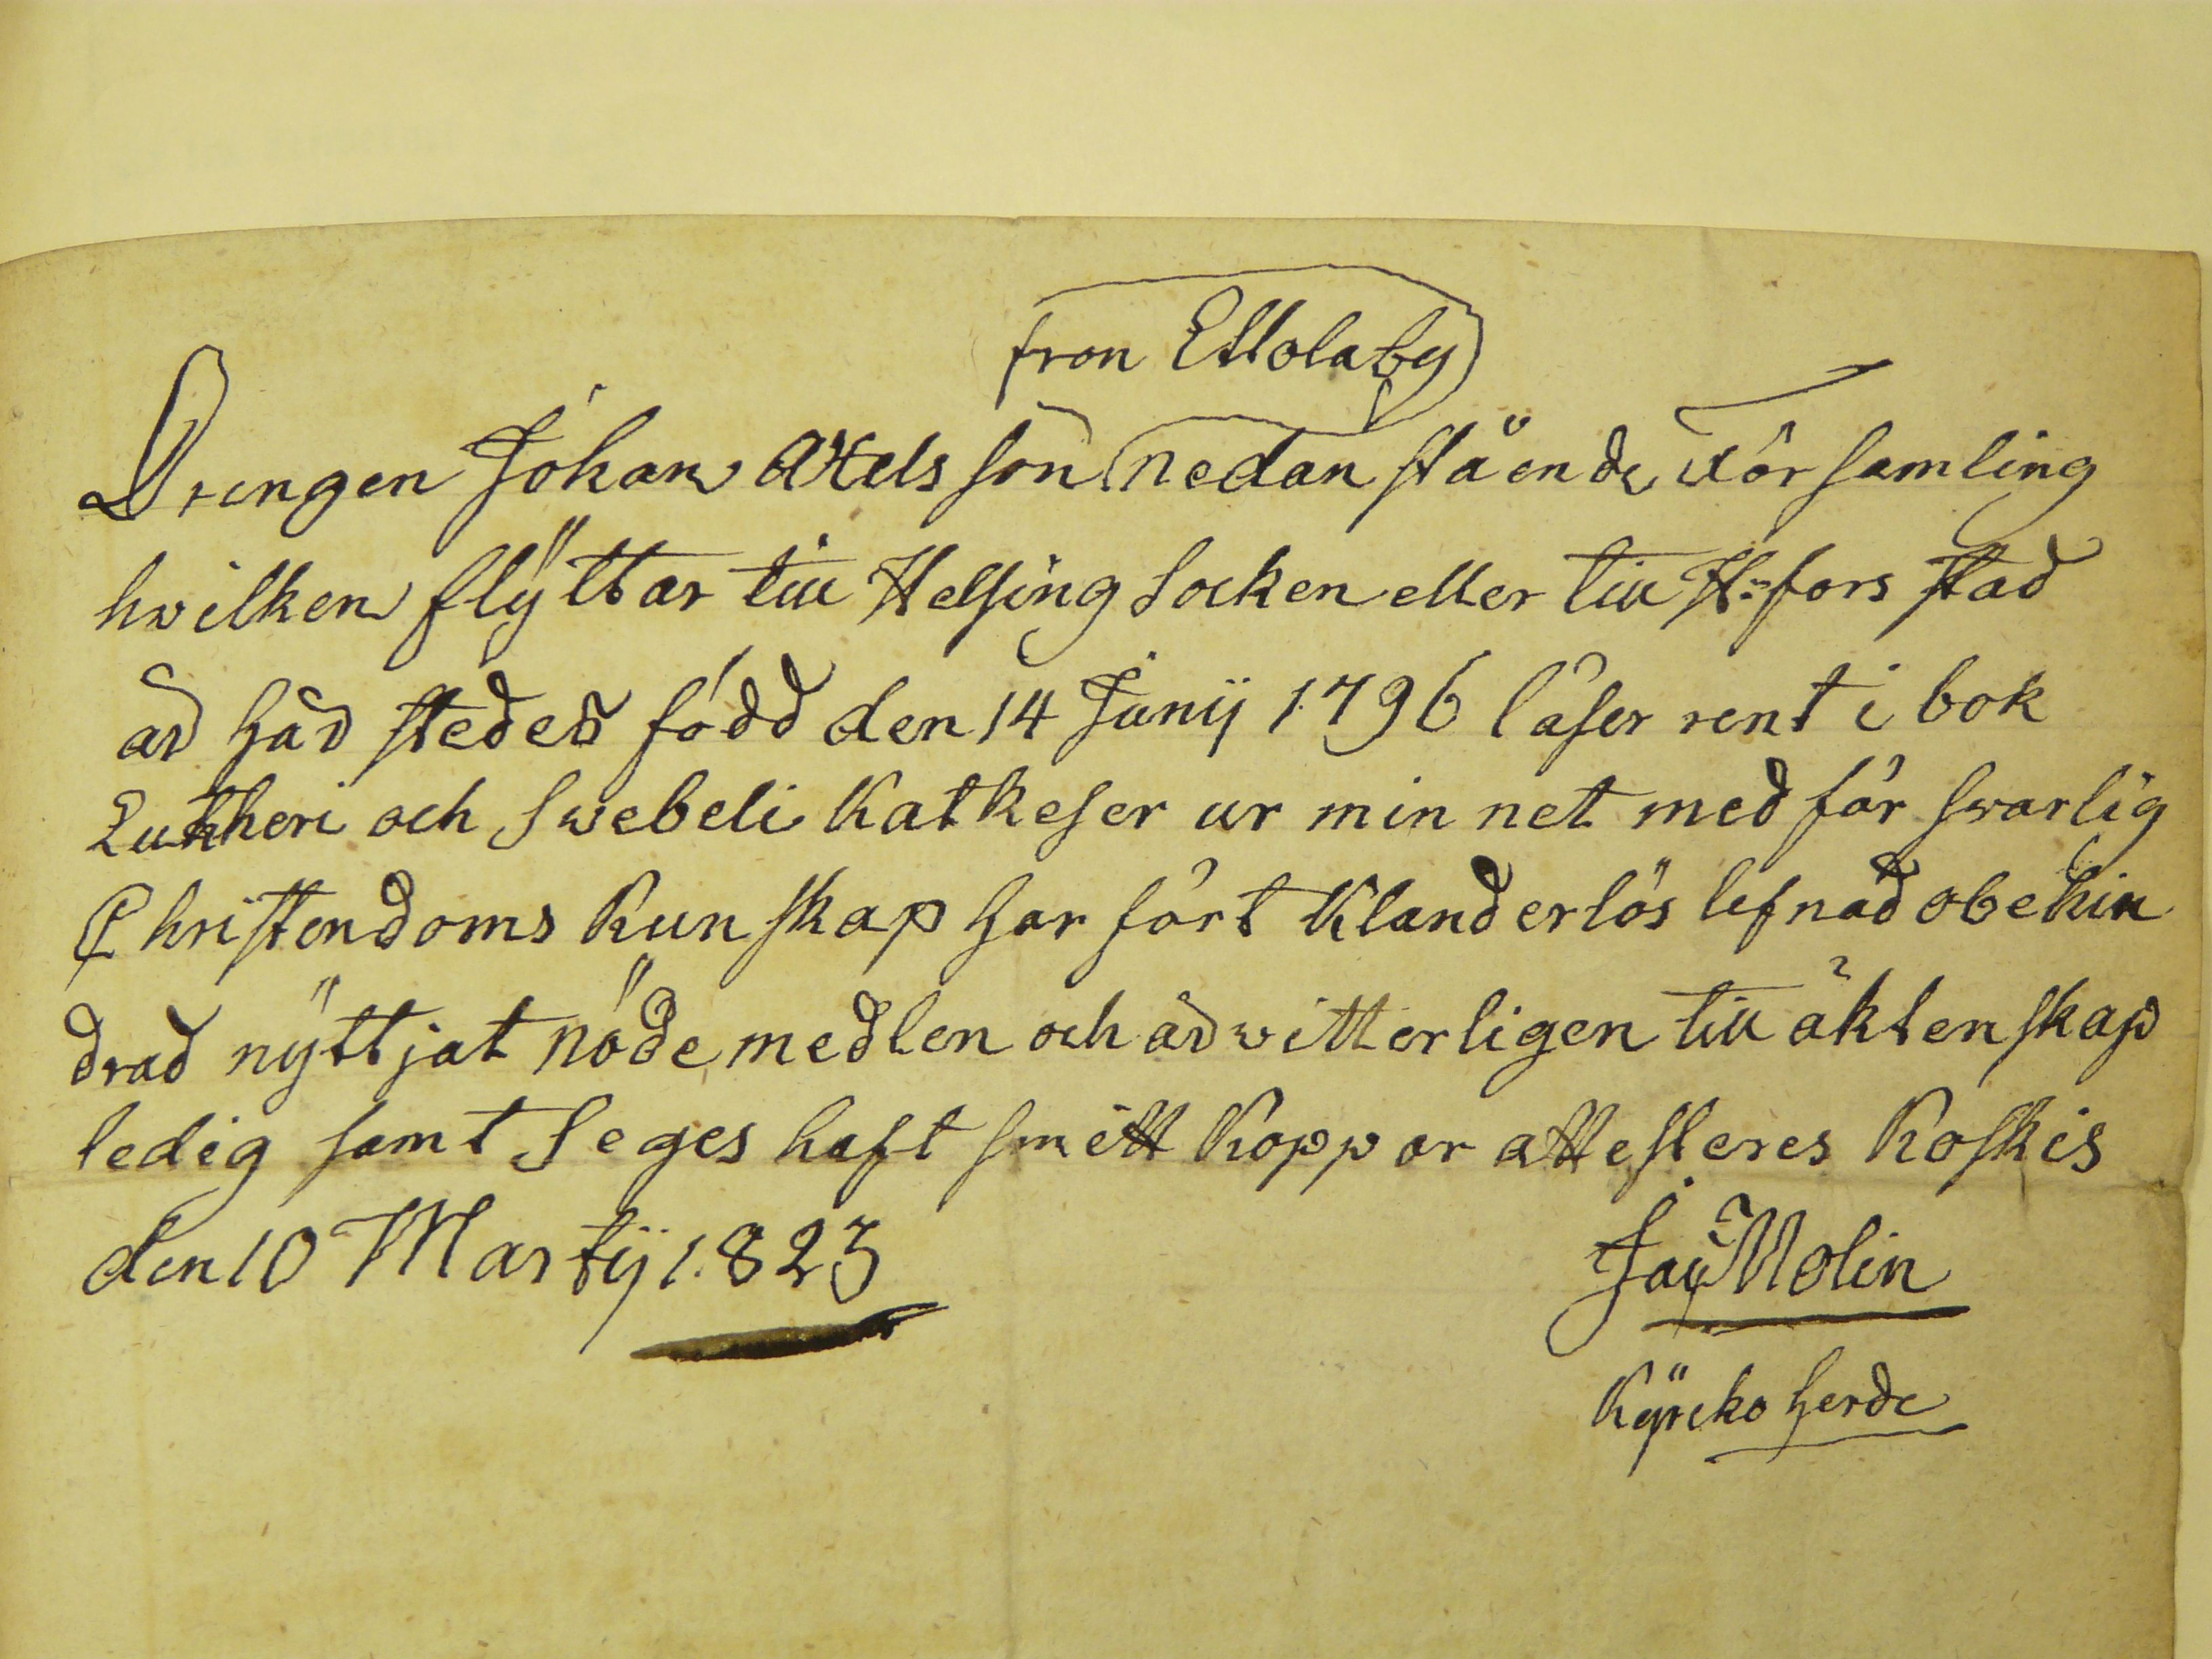 fron Ellolaby
Drengen Johan Axels son nedan stå ende församling
hwilken flÿttar till Helsing Socken eller till H:fors stad
är här stedes född den 14 Junij 1796 läser rent i bok
Luthheri och Swebeli Katkeser ur min net med för swarlig
Christendoms Kun skap har fört Klanderlös lefnad obehin
drad nÿttjat nöde medlen och är witterligen till äkten skap
ledig samt Seges haft smitt Koppor attesteres Koskis
den 10 Martij 1823
Molin
Kÿrcko herde